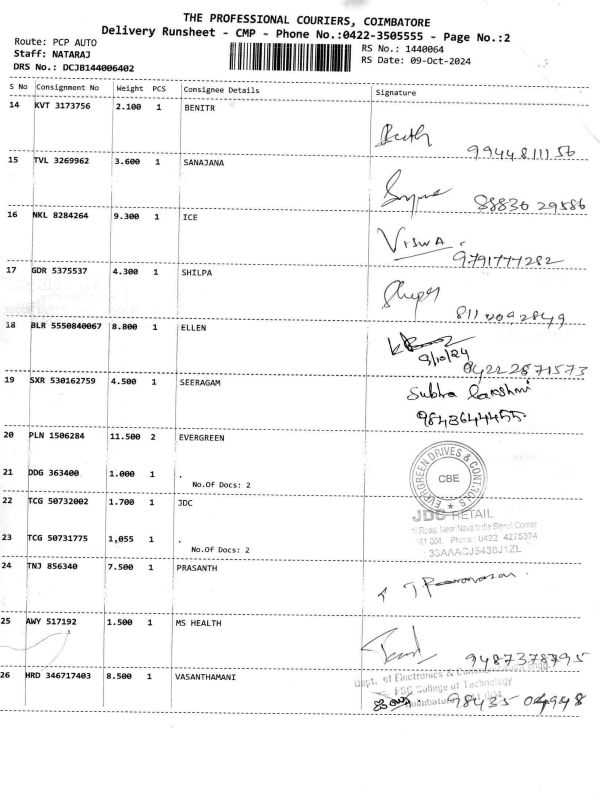 THE PROFESSIONAL COURIERS, COIMBATORE
Delivery Runsheet - CMP - Phone No.:0422-3505555 - Page No.:2
Route: PCP AUTO RS No.: 1440064
Staff: NATARAJ RS Date: 09-Oct-2024
DRS No.: DCJB144006402
S No Consignment No Weight PCS Consignee Details Signature
14 KVT 3173756 2.100 1 BENITR
9944811156
15 TVL 3269962 3.600 1 SANAJANA
88836 29586
16 NKL 8284264 9.300 1 ICE
VISWA.
9791777282
17 GDR 5375537 4.300 1 SHILPA
8110092849
18 BLR 5550840067 8.800 1 ELLEN
9/10/24
0422 2871573
19 SXR 530162759 4.500 1 SEERAGAM
Subha Lakshmi
9843644455
20 PLN 1506284 11.500 2 EVERGREEN
EVERGREEN DRIVES & CONTROLS
CBE
21 DDG 363400 1.000 1 .
No.Of Docs: 2
22 TCG 50732002 1.700 1 JDC
RETAIL
Road, Near Nava India Signal Corner
41 004. Phone: 0422 4275374
: 33AAACJ5438J1ZL
23 TCG 50731775 1,055 1 .
No.Of Docs: 2
24 TNJ 856340 7.500 1 PRASANTH
25 AWY 517192 1.500 1 MS HEALTH
9487378795
26 HRD 346717403 8.500 1 VASANTHAMANI
Dept. of Electronics &
College of Technology
98435 04948